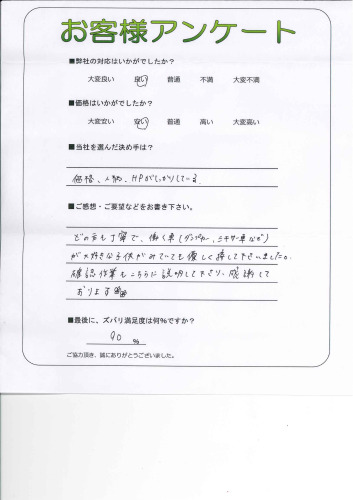 お客様アンケート
■弊社の対応はいかがでしたか？
大変良い 良い 普通 不満 大変不満
■価格はいかがでしたか？
大変安い 安い 普通 高い 大変高い
■当社を選んだ決め手は？
価格、人柄、HPがしっかりしている。
■ご感想・ご要望などをお書き下さい。
どの方も丁寧で、働く車(ダンプカー、ミキサー車など)
が大好きな子供がみていても優しく接して下さいました。
確認作業もこちらに説明して下さり、感謝して
おります
■最後に、ズバリ満足度は何%ですか？
90 %
ご協力頂き、誠にありがとうございました。